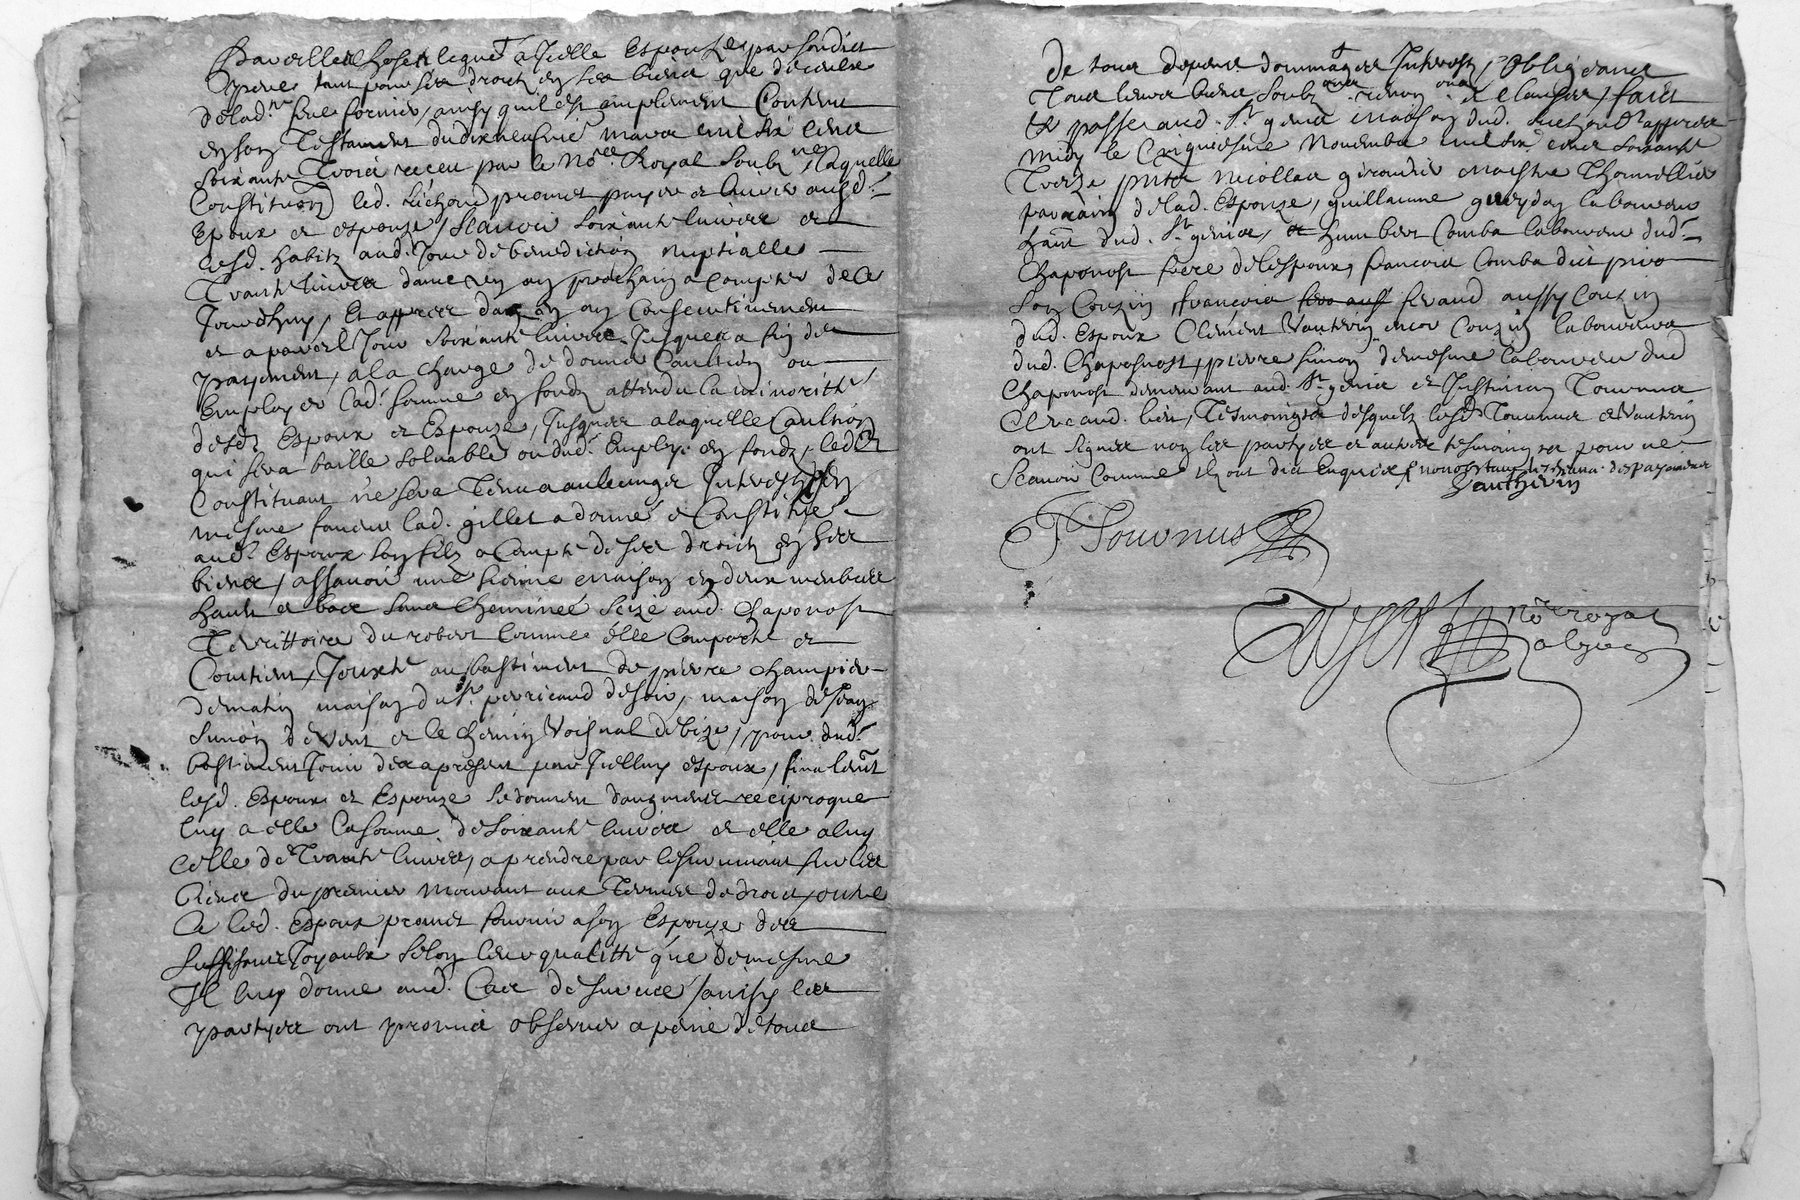 Pareilles choses leguet a Jcelle Espouze par sondict
pere tant pour ses droictz en ses biens que de ceulx
de lad. feue fornier, ainsy quil est amplement Contenu
en son Testament du dixneufvie mars mil six cens
soixante Trois receu par le No.re Royal soubz.ne Laquelle
Constitu.on led. promet payer et livrer ausd.
Epoux et espouze, scavoir soixante livres et
lesd. habitz aud. Jour de benediction nuptialle
Trante livres dans un an prochain a compter de ce
Jourdhuy, Et appres dans en an Consecutivement
et a pareil Jour soixante livres Jusques a fin de
payement, a la charge de donner Caultion ou
Employer lad. somme en fondz attendu la minorité
desd. Espoux et Espouze, Jusques a laquelle Caultion
qui sera baillé soluable ou dud. Employ en fondz, led.
Constituant ne sera Tenu a aulcungs Interestz En
mesme faveur lad. gillet a donné et Constitué
aud. Espoux son filz a Compte de ses droictz en ses
biens, assavoir une sienne maison en deux membres
hault et bas sans Cheminée scize aud. Chaponost
Territtoire du robert Comme elle Comporte et
Contient, Jouxte au bastiment de pierre Champier
de matin maison du s.r perricaud de soir, maison de Jean
Simon de vent et le chemin Voisinal de bize, pour dud.
bastiment Jouir des apresent par Jcelluy espoux, finalem.t
lesd. Espoux et Espouze se donnent daugment reciproque
luy a elle la somme de soixante livres et elle a luy
celle de Trante livres, a prendre par le survivant sur les
biens du premier mourant aux Termes de droict, outre
ce led. Espoux promet fournir a son Espouze des
suffisants Joyaulx selon leur qualitté que de mesme
Il luy donne aud. Cas de survie, sainsy les
partyes ont promis observer a peine de tous
de tous depens dommages Interestz, Obligeance
Tous leurs biens soubz renon. et clauses, faict
et passé aud. St genis maison dud. appres
midy le Cinquiesme Novembre mil six cens soixante
Treze pntz nicollas girondier maistre Thonnellier
parrain de lad. Espouze, guillaume laboureur
hant dud. St genis, et humbert Comba laboureur dud.
Chaponost frere de lespoux, francois Comba dict
son Cousin francois feraud aussy Cousin
dud. Espoux Clement Vautherin encor Cousin laboureurs
dud. Chaponost, pierre simon de mesme laboureur dud
Chaponost demeurant aud. St genis et Justinian Tournus
Clerc aud. lieu, Tesmoings desquelz lesd. Tournus et Vautherin
ont signer non les partyes et autres tesmoings pour ne
scavoir Comme ilz ont dict Enquis
Vautherin
J Tournus
no.re royal